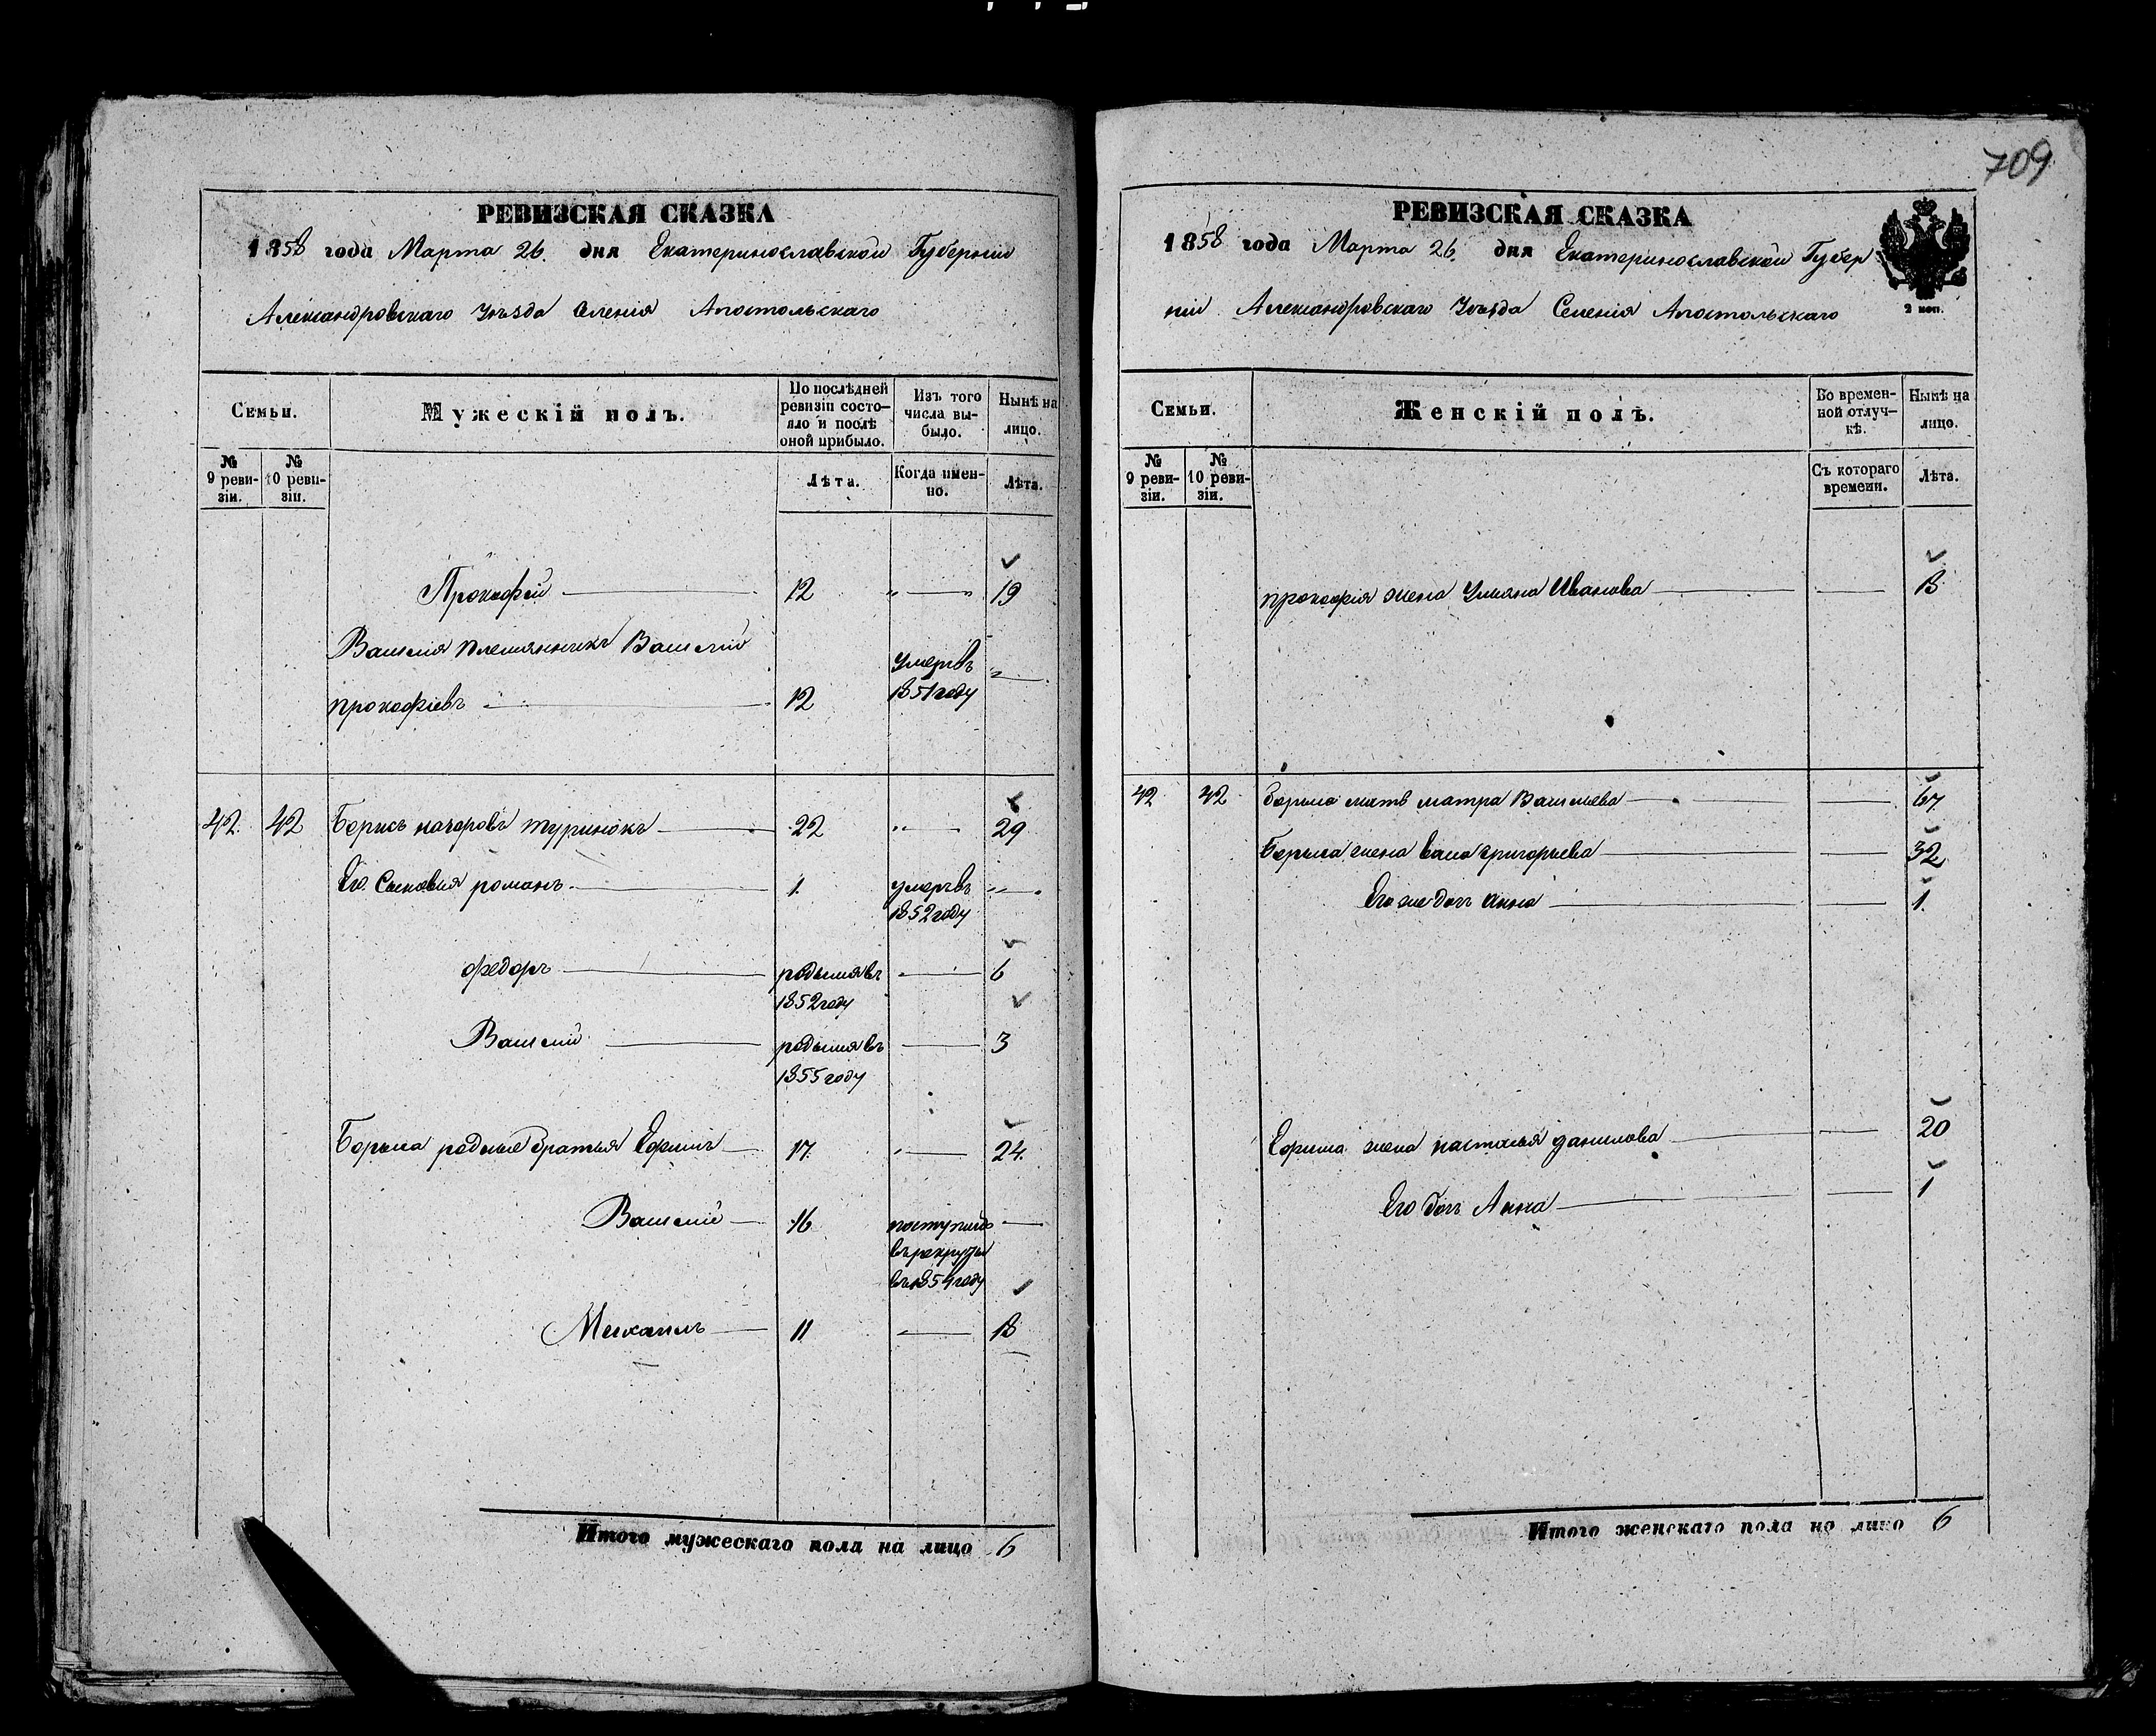 709
РЕВИЗСКАЯ СКАЗКА
1858 года Марта 26. дня Екатеринославской Губерніи
Александровскаго Уѣзда Селенія Апостольскаго
Семьи.
Мужескій полъ.
По послѣдней ревизіи состояло и послѣ оной прибыло.
Изъ того числа выбыло.
Нынѣ на лицо.
№ 9 ревизіи.
№ 10 ревизіи.
Лѣта.
Когда именно.
Лѣта.
Прокофій 12 " — " 19
Василія племянникъ Василій
прокофіевъ 12 умеръ въ 1851 году "
42. 42 Борисъ назаровъ туринокъ 22 " — 29
Его Сыновья романъ 1. умеръ въ 1852 году "
федоръ родился въ 1852 году — 6
Василій родился въ 1855 году — 3
Бориса родные братья Ефимъ 17. — 24.
Василій 16 поступилъ въ рекруты въ 1854 году —
Михаилъ 11 — 18
Итого мужескаго пола на лицо 6
РЕВИЗСКАЯ СКАЗКА
1858 года Марта 26. дня Екатеринославской Губер
ніи Александровскаго Уѣзда Селенія Апостольскаго
2 коп.
Семьи.
Женскій полъ.
Во временной отлучкѣ.
Нынѣ на лицо.
№ 9 ревизіи.
№ 10 ревизіи.
Съ котораго времени.
Лѣта.
прокофія жена Ульяна Иванова — 18
42 42 Бориса мать Васильева — 67
Бориса жена григорьева — 32
Его же доч Анна — 1.
Ефима жена настасья данилова — 20
Его доч Анна — 1
Итого женскаго пола на лицо 6